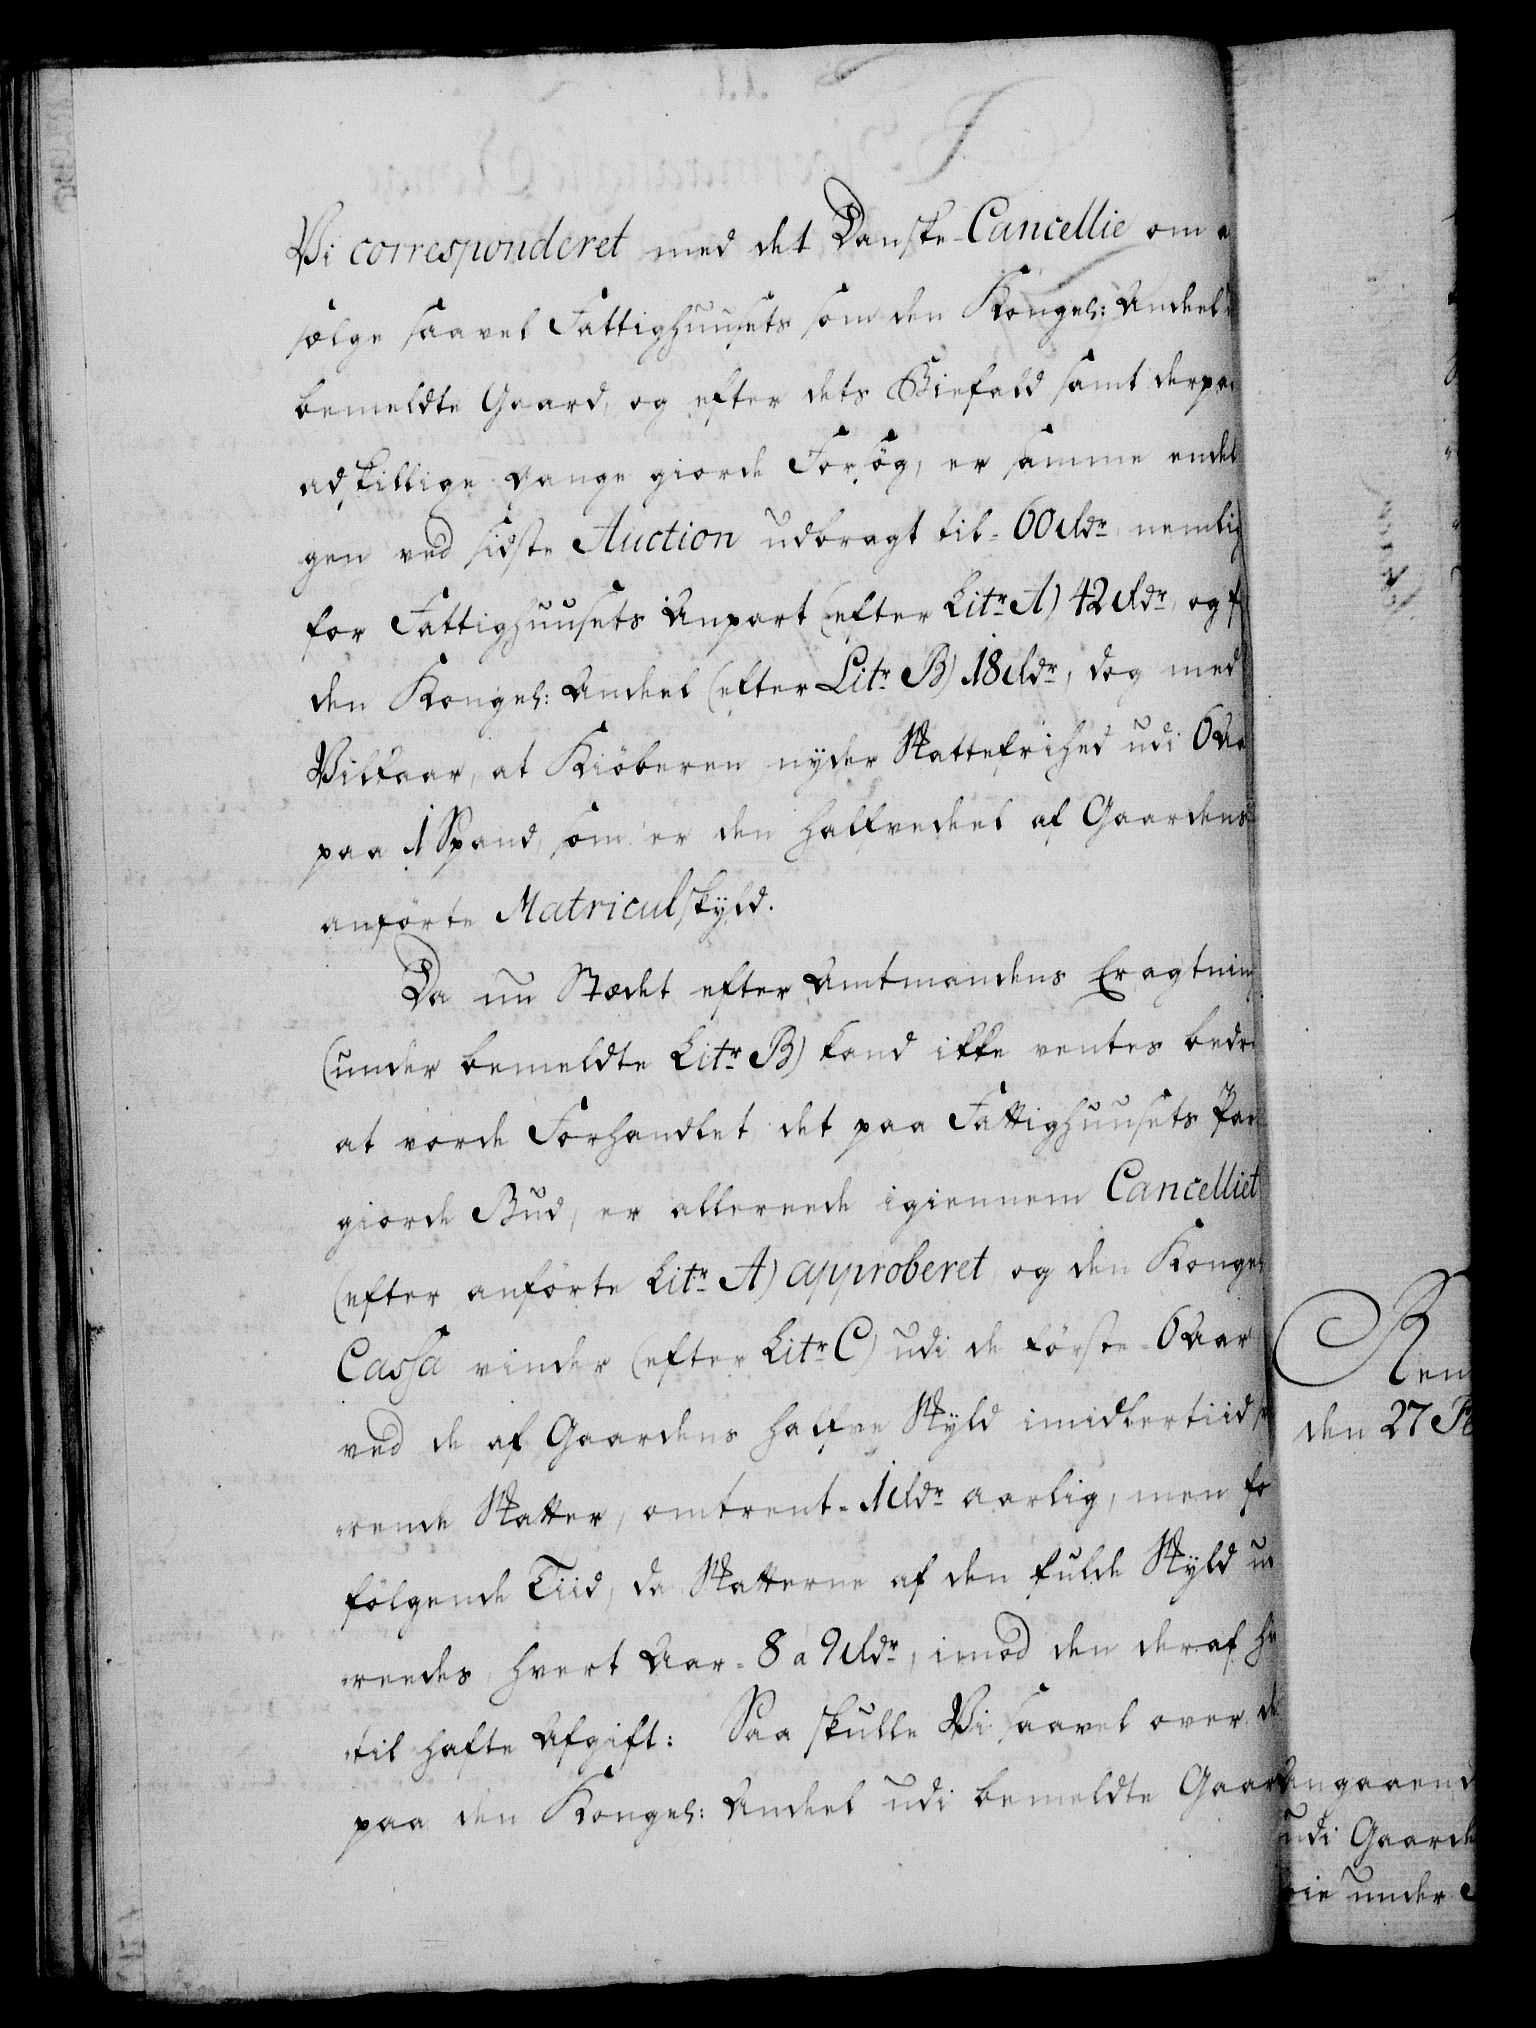 Vi corresponderet med det Danske Cancellie om a
sælge saavel Fattighuusets som den Kongel: Andeel
bemeldte Gaard, og efter dets Biefald samt derpaa
adskillige gange giorde Forsøg, er samme endel
gen ved sidste Auction udbragt til 60 Rdr nemlig
for Fattighuusets Anpart (efter Litr A) 42 Rdr, og f
den Kongel: Andeel (efter Litr B) 18 Rdr, dog med
Vilkaar, at Kiøberen nyder Skattefrihed udi 6 Aa
paa 1 Spand, som er den halfvedeel af Gaardens
anførte Matriculskyld.
Da nu Stædet efter Amtmandens Eragtning
(under bemeldte Litr B) kand ikke ventes bedre
at vorde Forhandlet, det paa Fattighuusets Par
giorde Bud, er allereede igiennem Cancelliet
(efter anførte Litr A) approberet, og den Kongel
Cassa vinder (efter Litr C) udi de første 6 Aar
ved de af Gaardens halfve Skyld imidlertiid s
rende Skatter, omtrent 1 Rdr aarlig, men fo
følgende Tiid, da Skatterne af den fulde Skyld u
reedes, hvert Aar 8 a 9 Rdr, imod den deraf h
til hafte Afgift: Saa skulle Vi saavel over d
paa den Kongel: Andeel udi bemeldte Gaar
Ren
den 27 Fe
Angaaend
udi Gaarde
under